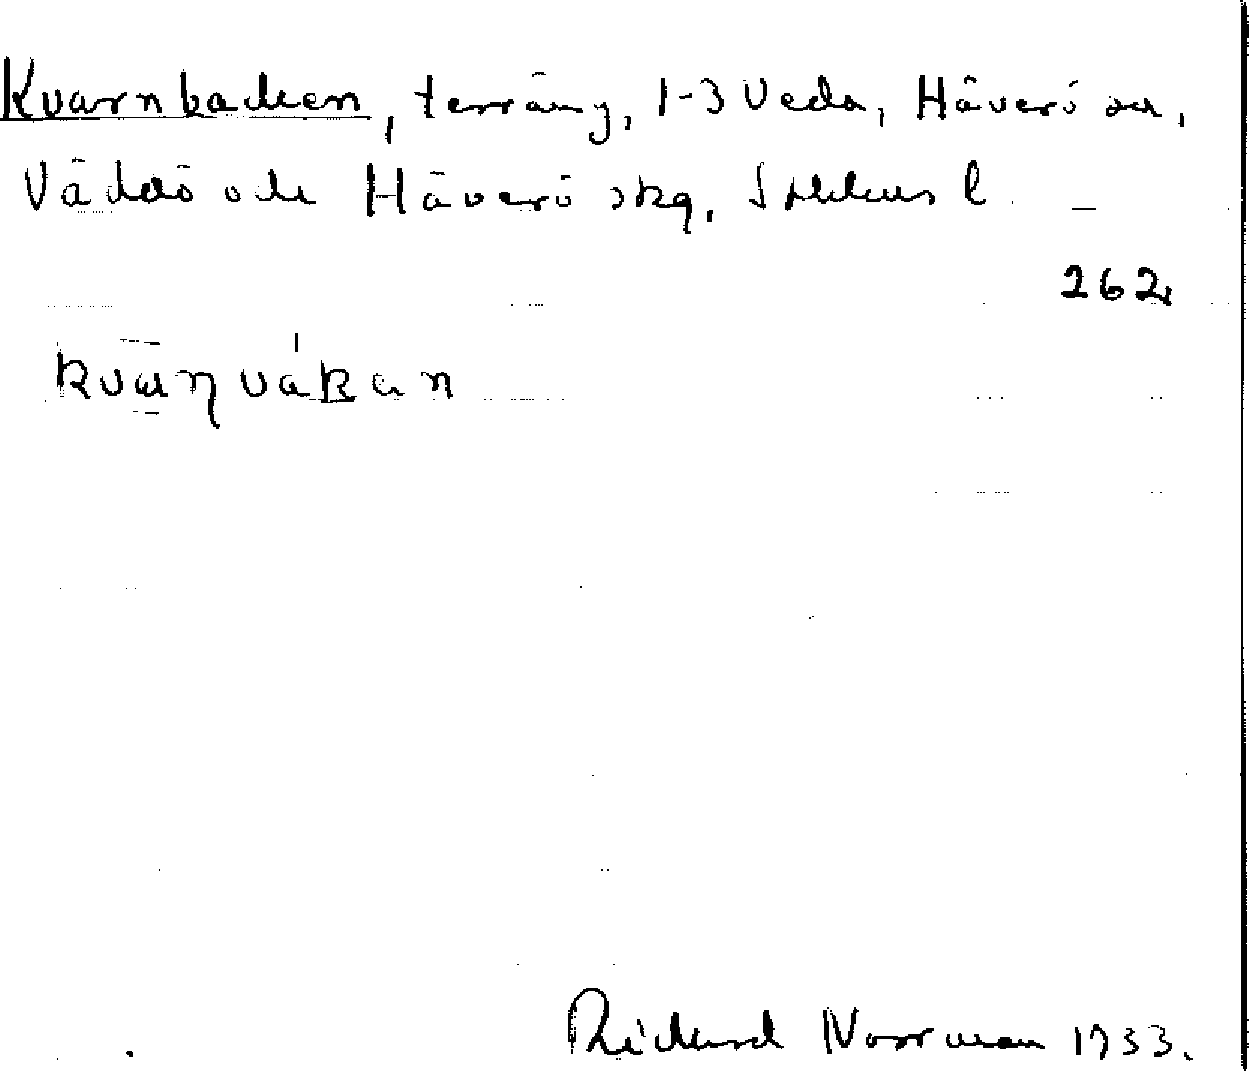 Kvarnbacken, terräng, 1-3 Veda, Häverö sn,
Väddö och Häverö skg, Sthlms l
262
Richard Norrman 1933.